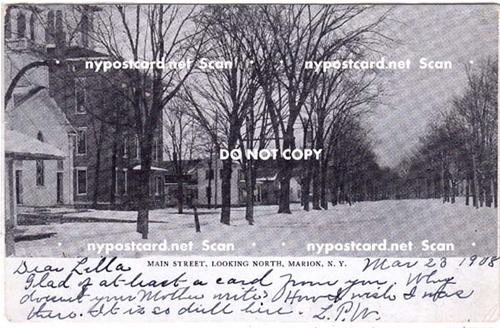 nypostcard.net Scan nypostcard.net Scan
DO NOT COPY
nypostcard.net Scan nypostcard.net Scan
MAIN STREET, LOOKING NORTH, MARION, N. Y.
Dear Lella Mar 23 1908
Glad of at-least a card from you. Why
doesn't your Mother write? How I wish I was
there. It is so dull here. L.P.W.